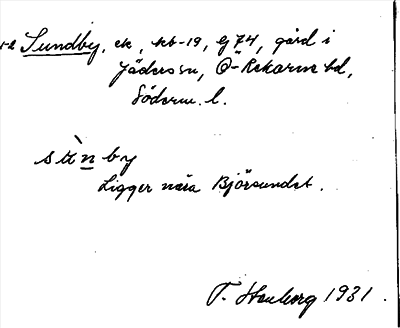 Sundby, ek, kb-19, Ej 74, gård i
Jäders sn, Ö-Rekarne hd,
Söderm. l.
sùnby
Ligger nära Björsundet.
1931.